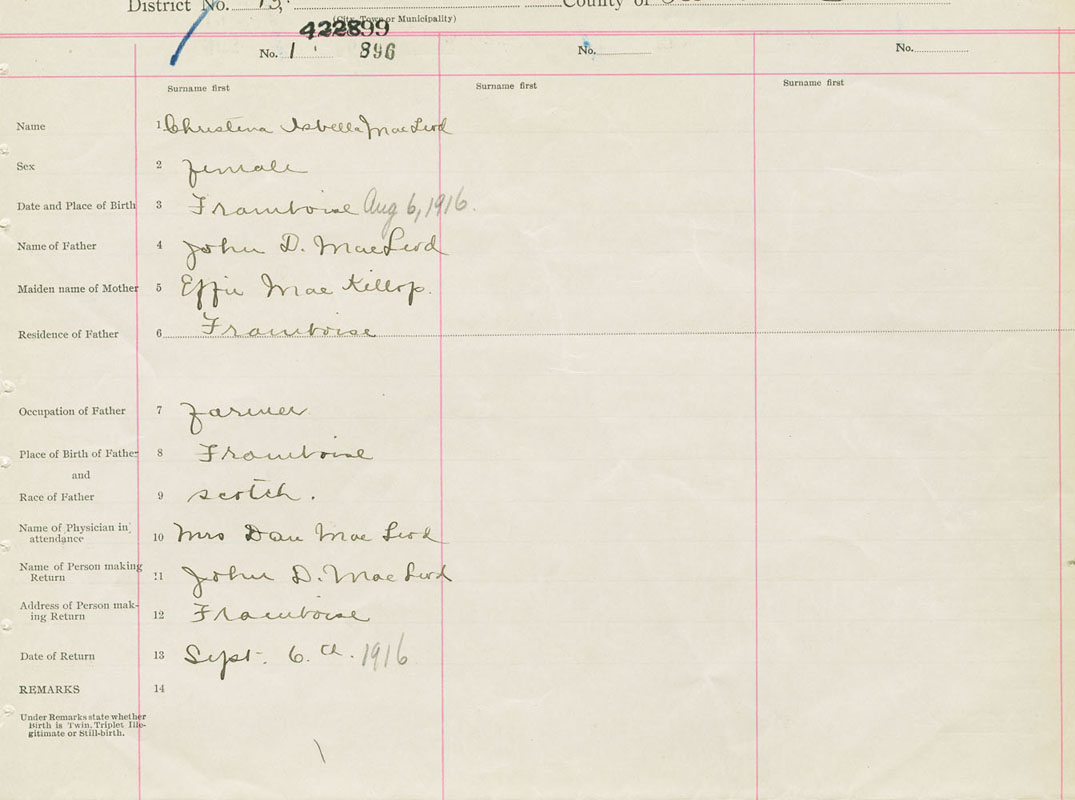 District No. 15,
County of
(City, Town or Municipality)
422899
No. 1 896
No.
No.
Surname first
Surname first
Surname first
Name 1 Christina Isbella MacLeod
Sex 2 female
Date and Place of Birth 3 Framboise Aug 6, 1916.
Name of Father 4 John D. MacLeod
Maiden name of Mother 5 Effie Mac Killop.
Residence of Father 6 Framboise
Occupation of Father 7 farmer
Place of Birth of Father 8 Framboise
and
Race of Father 9 scotch.
Name of Physician in
attendance 10 Mrs Dan Mac Leod
Name of Person making
Return 11 John D. Mac Leod
Address of Person mak-
ing Return 12 Framboise
Date of Return 13 Sept. 6.th. 1916
REMARKS 14
Under Remarks state whether
Birth is Twin, Triplet Ille-
gitimate or Still-birth.